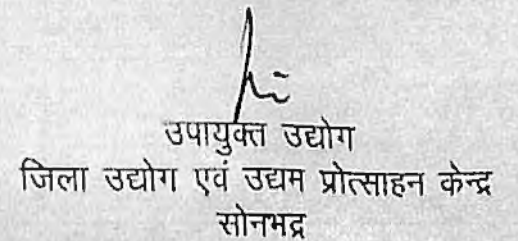 उपायुक्त उद्योग
जिला उद्योग एवं उद्यम प्रोत्साहन केन्द्र
सोनभद्र